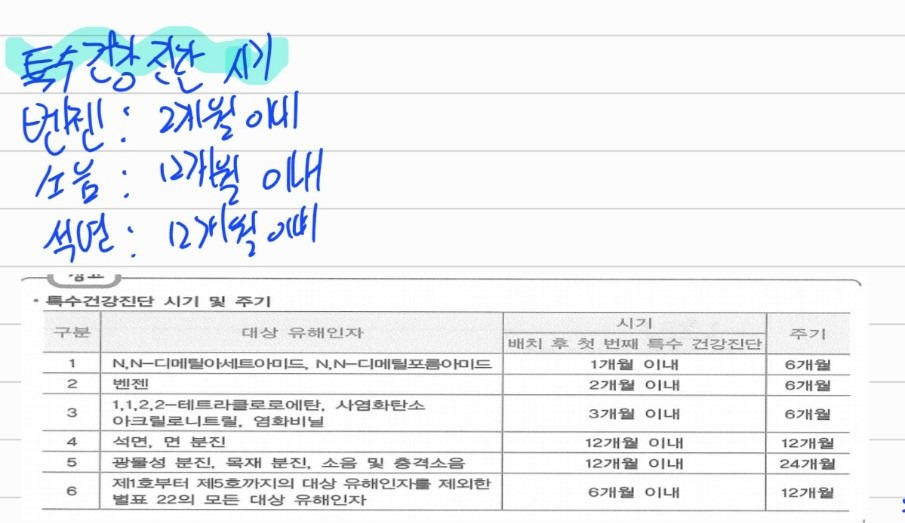 특수건강진단 시기
벤젠 : 2개월 이내
소음 : 12개월 이내
석면 : 12개월 이내
참고
• 특수건강진단 시기 및 주기
구분 대상 유해인자 시기 주기
배치 후 첫 번째 특수 건강진단
1 N,N-디메틸아세트아미드, N,N-디메틸포름아미드 1개월 이내 6개월
2 벤젠 2개월 이내 6개월
3 1,1,2,2-테트라클로로에탄, 사염화탄소 3개월 이내 6개월
아크릴로니트릴, 염화비닐
4 석면, 면 분진 12개월 이내 12개월
5 광물성 분진, 목재 분진, 소음 및 충격소음 12개월 이내 24개월
6 제1호부터 제5호까지의 대상 유해인자를 제외한 6개월 이내 12개월
별표 22의 모든 대상 유해인자